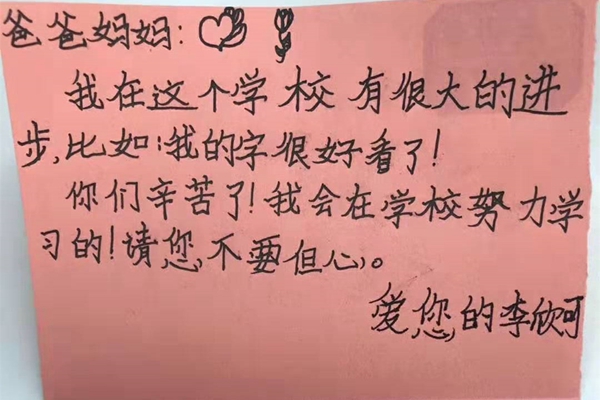 爸爸妈妈:
我在这个学校有很大的进
步,比如:我的字很好看了!
你们辛苦了!我会在学校努力学
习的!请您不要但心。
爱您的李欣可